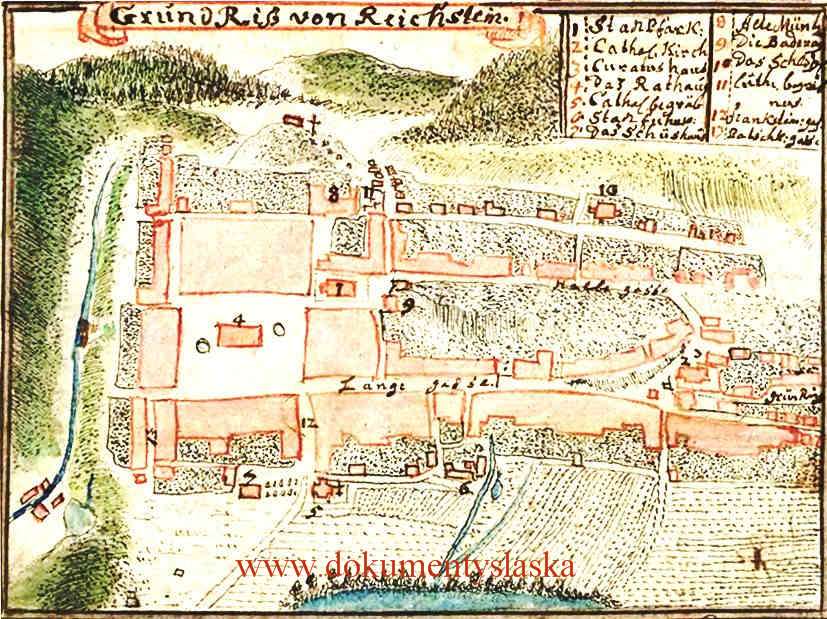 Grund Riß von Reichstein.
1 Stan Pfark:
2 Cathol. Kirch
3 Curatus haus
4 Das Rathaus
5 Cathol. begräb
6
7 Das Schüshaus
8 Alte Müntz
9 Die Badera
10 Das Schlos
11 Luth. begräb
nus.
12 gas
13 gasse
8
11
10
1
9
4
gasse
2
3
Lange gasse.
Grün Ring
12
13
7
5
6
www.dokumentyslaska